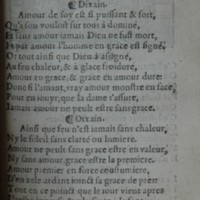 ¶ Dixain.
Amour de soy est si puissant & fort,
Qu'a son vouloir sur tout a dominé,
Et sans amour iamais Dieu ne fust mort,
Ia par amour l'homme en grace est signé,
Or tout ainsi que Dieu à assigné,
Au feu chaleur, & à glace froidure,
Amour en grace & grace en amour dure:
Donc si l'amāt, vray amour monstre en face,
Pour en iouyr que la dame s'assure,
Iamais amour ne peult estre sans grace.
¶ Octain.
Ainsi que feu n'est iamais sans chaleur,
Ny le soleil sans clarté ou lumiere.
Amour ne peult sans grace estre en valeur,
Ny sans amour grace estre la premiere.
Amour premier en force coustumiere,
D'vn zele ardant ioinct sa grace de pien
Tout en ce poinct que le iour vient apres